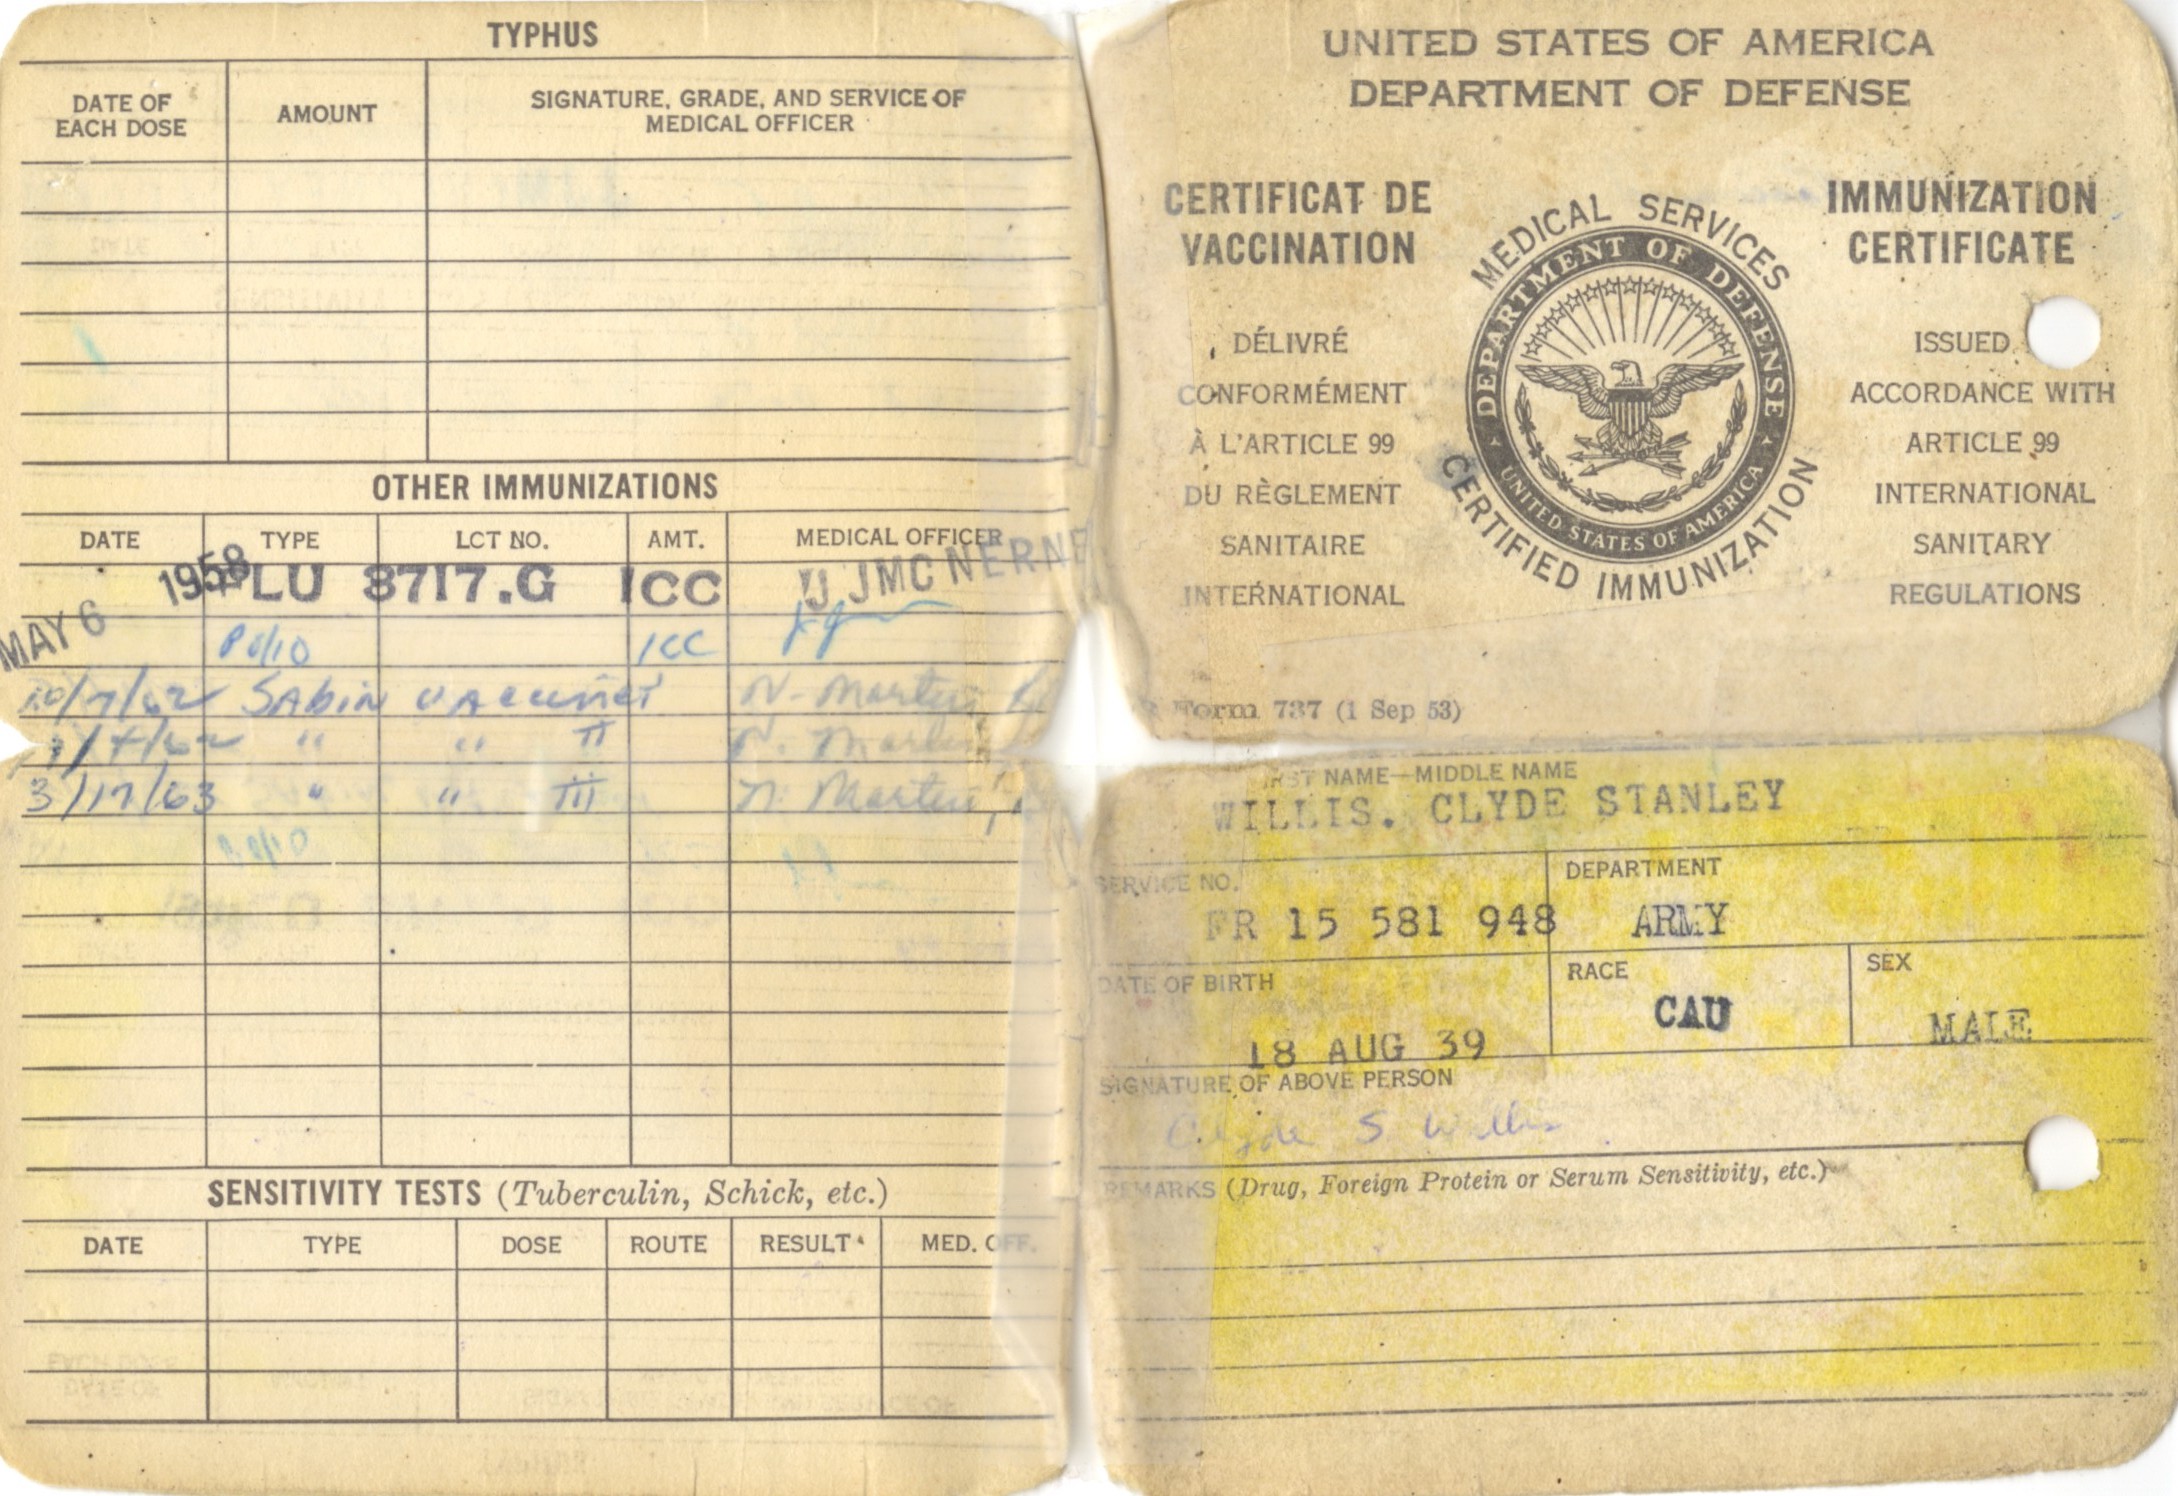 TYPHUS
DATE OF EACH DOSE
AMOUNT
SIGNATURE, GRADE, AND SERVICE OF MEDICAL OFFICER
OTHER IMMUNIZATIONS
DATE TYPE LCT NO. AMT. MEDICAL OFFICER
MAY 6 1958 FLU 3717.G 1CC J JMCNERNE
Polio 1CC
10/7/62 SABIN VACCINE I N. Martin
/62 " " II N. Martin
3/17/63 " " III N. Martin,
SENSITIVITY TESTS (Tuberculin, Schick, etc.)
DATE TYPE DOSE ROUTE RESULT MED. OFF.
UNITED STATES OF AMERICA
DEPARTMENT OF DEFENSE
CERTIFICAT DE
VACCINATION
DÉLIVRÉ
CONFORMÉMENT
À L'ARTICLE 99
DU RÈGLEMENT
SANITAIRE
INTERNATIONAL
MEDICAL SERVICES
DEPARTMENT OF DEFENSE
UNITED STATES OF AMERICA
CERTIFIED IMMUNIZATION
IMMUNIZATION
CERTIFICATE
ISSUED
ACCORDANCE WITH
ARTICLE 99
INTERNATIONAL
SANITARY
REGULATIONS
Form 737 (1 Sep 53)
NAME—MIDDLE NAME
WILLIS. CLYDE STANLEY
SERVICE NO. DEPARTMENT
FR 15 581 948 ARMY
DATE OF BIRTH RACE SEX
18 AUG 39 CAU MALE
SIGNATURE OF ABOVE PERSON
Clyde S Willis
REMARKS (Drug, Foreign Protein or Serum Sensitivity, etc.)